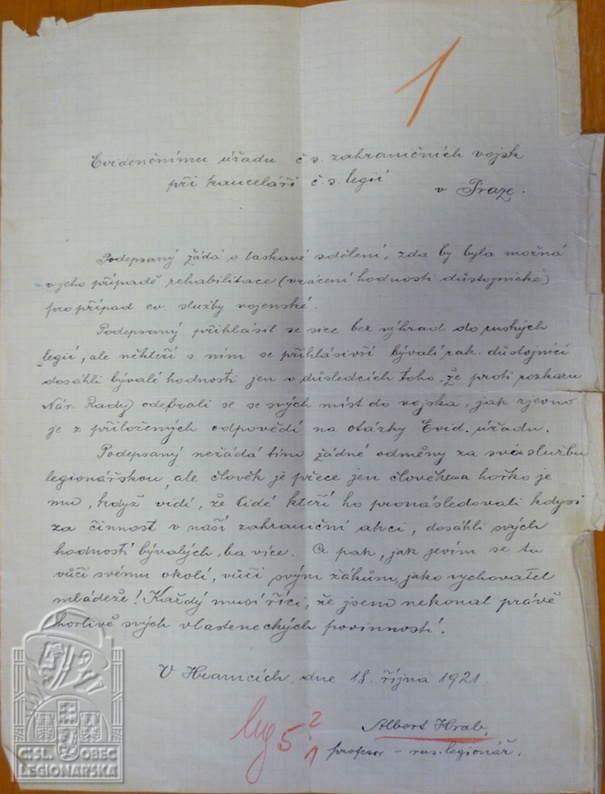 1
Evidenčnímu úřadu č. s. zahraničních vojsk
při kanceláři č. s. legií
v Praze.
Podepsaný žádá o laskavé sdělení, zda by byla možná
v jeho případě rehabilitace (vrácení hodnosti důstojnické)
pro případ ev. služby vojenské.
Podepsaný přihlásil se sice bez výhrad do ruských
legií, ale někteří s ním se přihlásivší bývalí rak. důstojníci
dosáhli bývalé hodnosti jen v důsledcích toho, že proti rozkazu
Nár. Rady odebrali se se svých míst do vojska, jak zjevno
je z přiložených odpovědí na otázky Evid. úřadu.
Podepsaný nežádá tím žádné odměny za svou službu
legionářskou, ale člověk je přece jen člověkem a hořko je
mu, když vidí, že lidé kteří ho pronásledovali kdysi
za činnost v naší zahraniční akci, dosáhli svých
hodností bývalých, ba více. A pak, jak jevím se tu
vůči svému okolí, vůči svým žákům, jako vychovatel
mládeže! Každý musí říci, že jsem nekonal právě
horlivě svých vlasteneckých povinností.
V Hranicích, dne 18. října 1921.
Albert Hrab,
profesor - rus. legionář.
5 2/1
ČSL. OBEC
LEGIONÁŘSKÁ